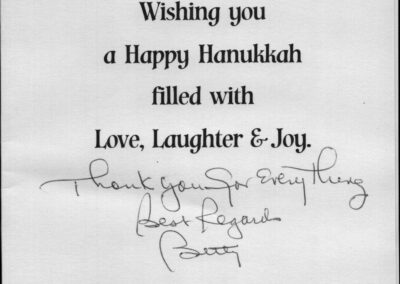 Wishing you
a Happy Hanukkah
filled with
Love, Laughter & Joy.
Thank You For EveryThing
Best Regards
Betty